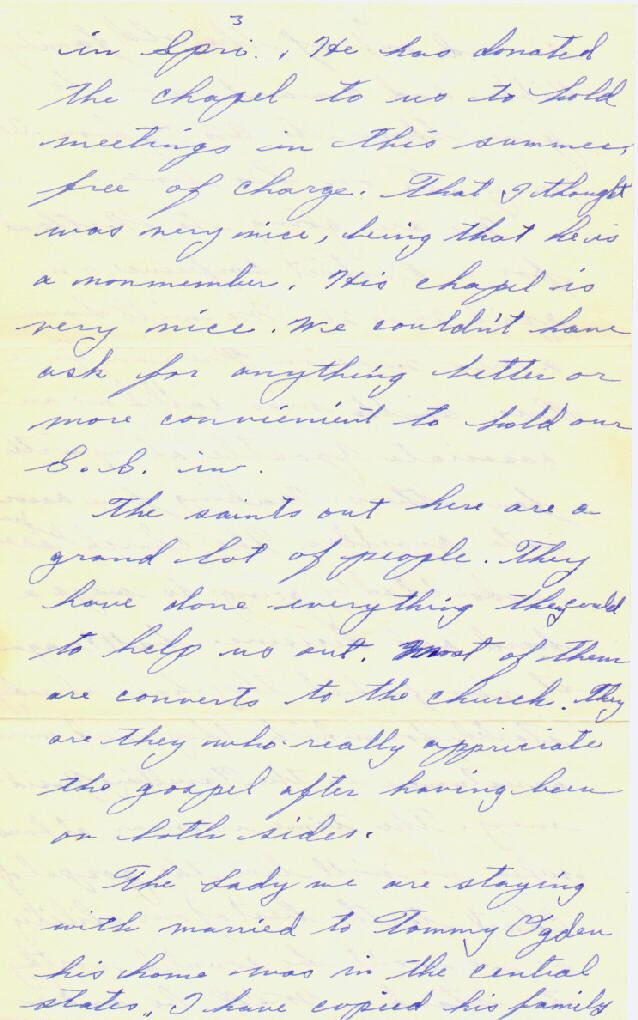 3
in Spri. . He has donated
the chapel to us to hold
meetings in this summer,
free of charge. That I thought
was very nice, being that he is
a nonmember. His chapel is
very nice. We couldn't have
ask for anything better or
more convienient to hold our
S. S. in.
The saints out here are a
grand lot of people. They
have done everything they could
to help us out. Most of them
are converts to the church. They
are they who really appriciate
the gospel after having been
on both sides.
The lady we are staying
with married to Tommy Ogden
his home was in the central
states, I have copied his family